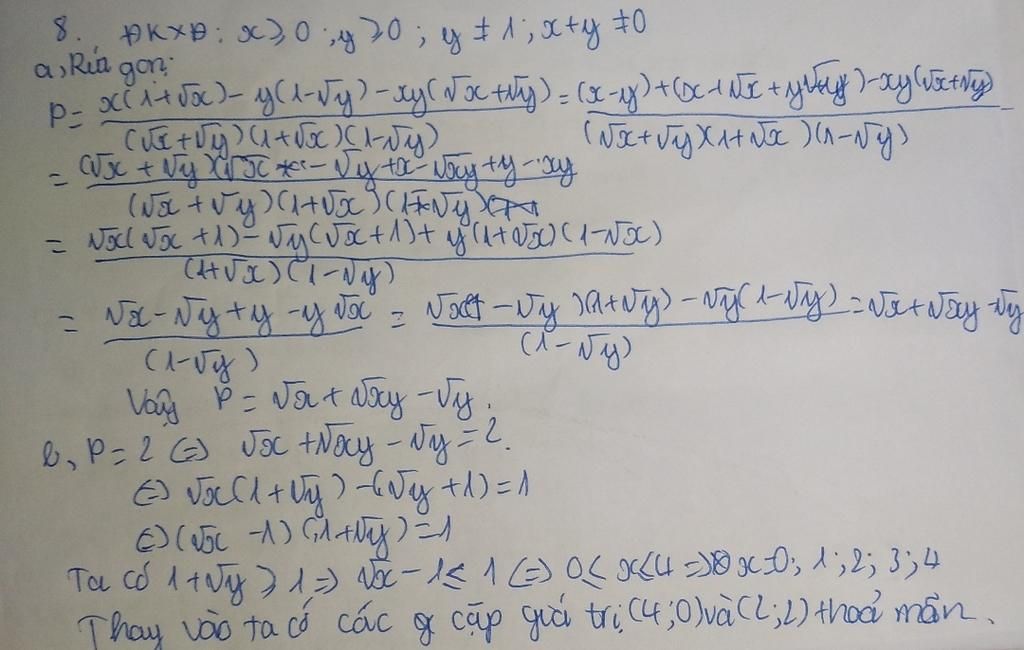 8. ĐKXĐ: x ≥ 0 ; y ≥ 0 ; y ≠ 1 ; x+y ≠ 0
a, Rút gọn:
P = (x(1+√x) - y(1-√y) - xy(√x+√y)) / ((√x+√y)(1+√x)(1-√y)) = ((x-y) + (x√x + y√y) - xy(√x+√y)) / ((√x+√y)(1+√x)(1-√y))
= (√x+√y)(√x - √y + x - √xy + y - xy) / ((√x+√y)(1+√x)(1-√y))
= (√x(√x+1) - √y(√x+1) + y(1+√x)(1-√x)) / ((1+√x)(1-√y))
= (√x - √y + y - y√x) / (1-√y) = (√x(1-√y)(1+√y) - √y(1-√y)) / (1-√y) = √x + √xy - √y
Vậy P = √x + √xy - √y.
b, P = 2 (=) √x + √xy - √y = 2.
(=) √x(1+√y) - (√y+1) = 1
(=) (√x -1)(1+√y) = 1
Ta có 1+√y ≥ 1 => √x - 1 ≤ 1 (=) 0 ≤ x ≤ 4 => x=0; 1; 2; 3; 4
Thay vào ta có các cặp giá trị (4;0) và (2;2) thoả mãn.